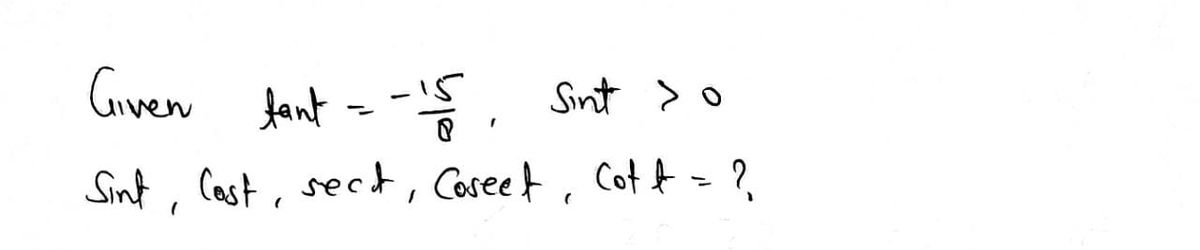 Given tant = -15/8, Sint > 0
Sint, Cost, sect, Cosect, Cot t = ?